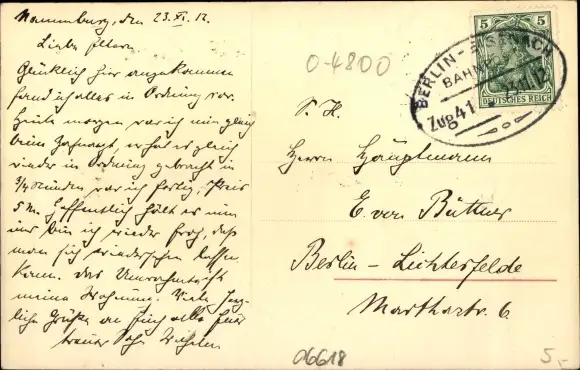 Naumburg, den 23. XI. 12.
Liebe Eltern
Glücklich hier angekommen
fand ich alles in Ordnung vor.
Heute morgen war ich nun gleich
beim Zahnarzt, er hat es gleich
wieder in Ordnung gebracht in
3/4 Stunden war ich fertig, Preis
5 M. Hoffentlich hält es nun
nur bin ich wieder froh, daß
man sich wiedersehen lassen
kann. Das
meine Wohnung. Viele herz-
liche Grüße an Euch alle Euer
treuer Sohn
5 5
DEUTSCHES REICH
BERLIN - EISENACH
BAHNPOST
Zug 41
23.11.12
0-4800
S. H.
Herrn Hauptmann
E. von Büttner
Berlin - Lichterfelde
Marthastr. 6
06618
5,-